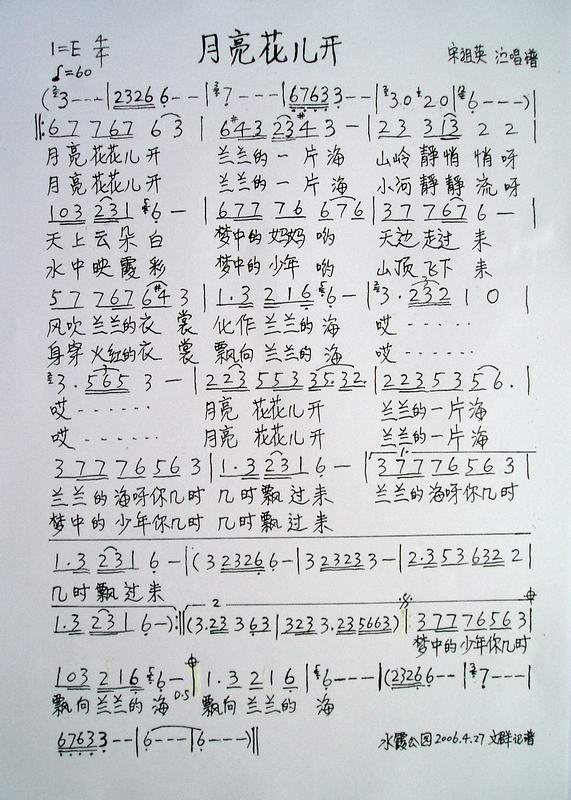 月亮花儿开
1=E 4/4
♩=60
宋祖英 演唱谱
(3--- | 23266-- | 7--- | 676333-- | 3·0 2 0 | 6---)|
‖: 67 7767 63 | 6#43 23#4 3- | 23 313 2 2 |
月亮花花儿开 兰兰的一片海 山岭静悄悄呀
月亮花花儿开 兰兰的一片海 小河静静流呀
103 231 6- | 677 76 676 | 37 767 6- |
天上云朵白 梦中的妈妈哟 天边走过来
水中映霞彩 梦中的少年哟 山顶飞下来
57 767 6#4 3 | 1·3 216 6- | 3·232 1 0 |
风吹兰兰的衣裳 化作兰兰的海 哎······
身穿火红的衣裳 飘向兰兰的海 哎······
3·565 3- | 223 553 3532 | 223535 6· |
哎······ 月亮花花儿开 兰兰的一片海
哎······ 月亮花花儿开 兰兰的一片海
377 76563 | 1·3 231 6- | 377 76563 |
兰兰的海呀你几时 几时飘过来 兰兰的海呀你几时
梦中的少年你几时 几时飘过来
1·3 231 6- |(3 23266- | 3 23233- | 2·353 632 2 |
几时飘过来
1·3 231 6-):‖ 2 (3·233 63 | 323 3·235663) | 377 76563 |
梦中的少年你几时
103 216 6- D·S | 1·3 216 | 6--- |(23266-- | 7--- |
飘向兰兰的海 飘向兰兰的 海
67633-- | 6--- | 6---)‖
水霞公园2006.4.27 文群记谱